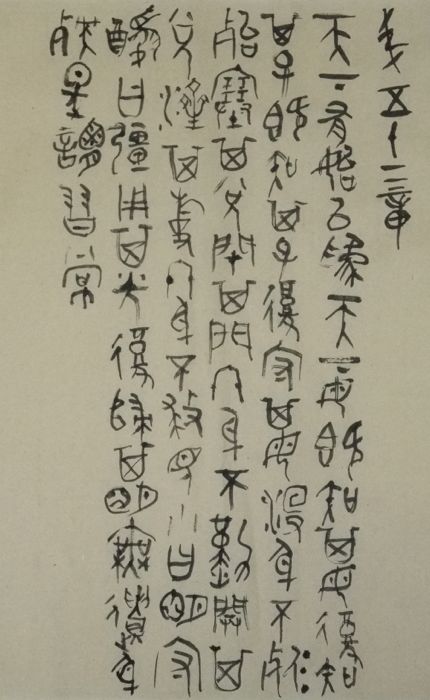 弟五十二章
天下有始以為天下母既知其母復知
其子既知其子復守其母沒身不
殆塞其兌閉其門終身不勤開其
兌濟其事終身不救見小曰明守
柔曰強用其光復歸其明無遺身
殃是謂習常